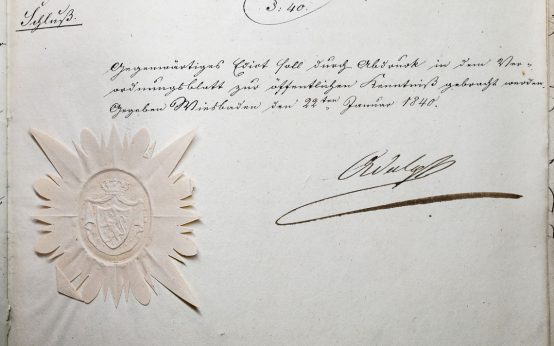 3:40.
Schluß.
Gegenwärtiges Edict soll durch Abdruck in dem Ver-
ordnungsblatt zur öffentlichen Kenntniß gebracht werden.
Gegeben Wiesbaden den 22ten Januar 1840.
Adolph